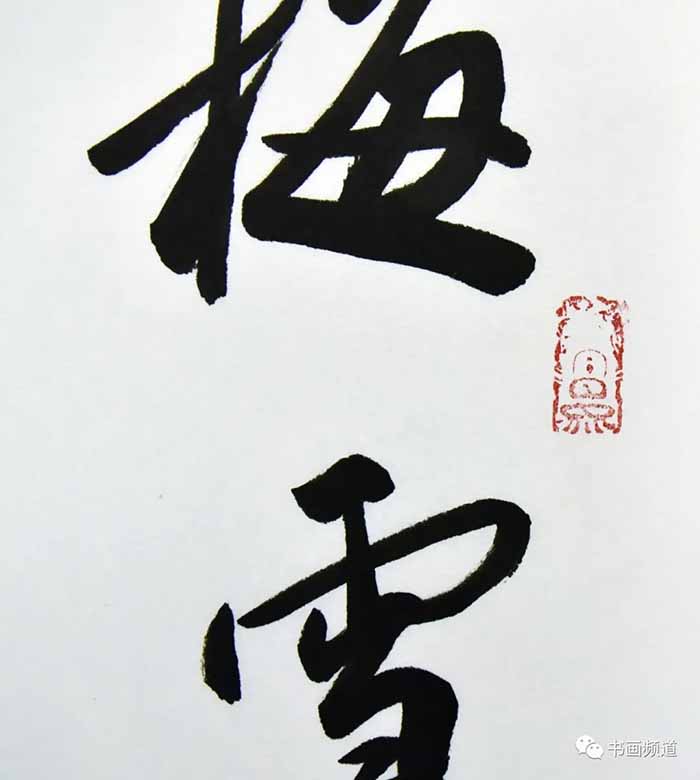 梅
雪
书画频道